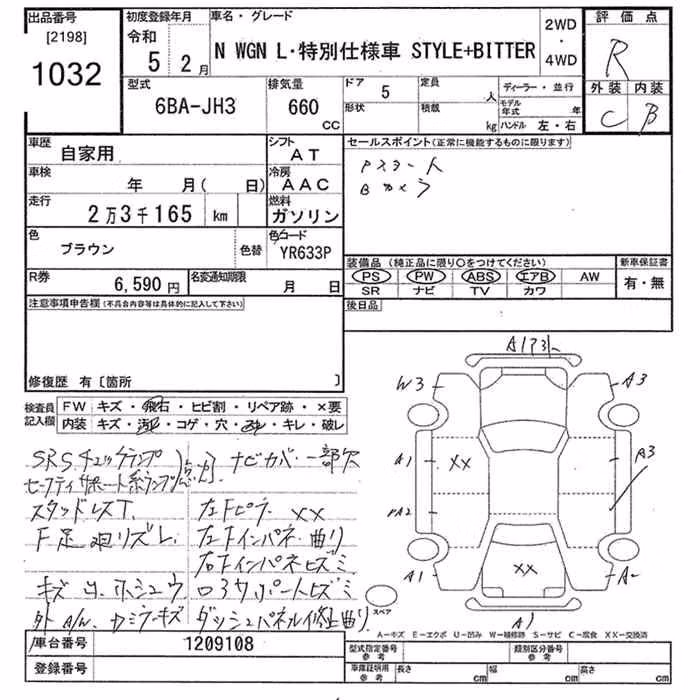 出品番号
[2198]
1032
初度登録年月
令和
5 2月
車名・グレード
N WGN L・特別仕様車 STYLE+BITTER
2WD
・
4WD
評価点
R
外装 内装
C B
型式
6BA-JH3
排気量
660
CC
ドア 5
形状
定員
人
積載
kg
ディーラー・並行
モデル年式 年
ハンドル 左・右
車歴
自家用
シフト
AT
車検
年 月( 日)
冷房
AAC
走行
2万3千165 km
燃料
ガソリン
色
ブラウン
色替
色コード
YR633P
R券
6,590円
名変通知期限
月 日
セールスポイント(正常に機能するものに限ります)
Pスタート
Bカメラ
装備品(純正品に限り○をつけてください)
PS PW ABS エアB AW
SR ナビ TV カワ
新車保証書
有・無
後日品
注意事項申告欄(不具合内容等は具体的に記入して下さい)
修復歴 有〔箇所 〕
検査員
記入欄
FW キズ・飛石・ヒビ割・リペア跡・×要
内装 キズ・汚れ・コゲ・穴・ヌレ・キレ・破レ
SRS チェックランプ
セーフティサポート系ランプ
点灯
ナビカバー一部欠
スタッドレスT.
F足廻リズレ.
左Fピラー ××
左Fインパネ曲り
右Fインパネヒズミ
キズ
コアサポートヒズミ
外
ダッシュパネル修正曲り
A1
W3
A3
A1
××
A3
A2
A1
××
A
A1
スペア
A―キズ E―エクボ U―凹み W―補修跡 S―サビ C―腐食 XX―交換済
車台番号 1209108
登録番号
型式指定番号
参考
類別区分番号
参考
車庫証明用
参考
長さ cm 幅 cm 高さ cm